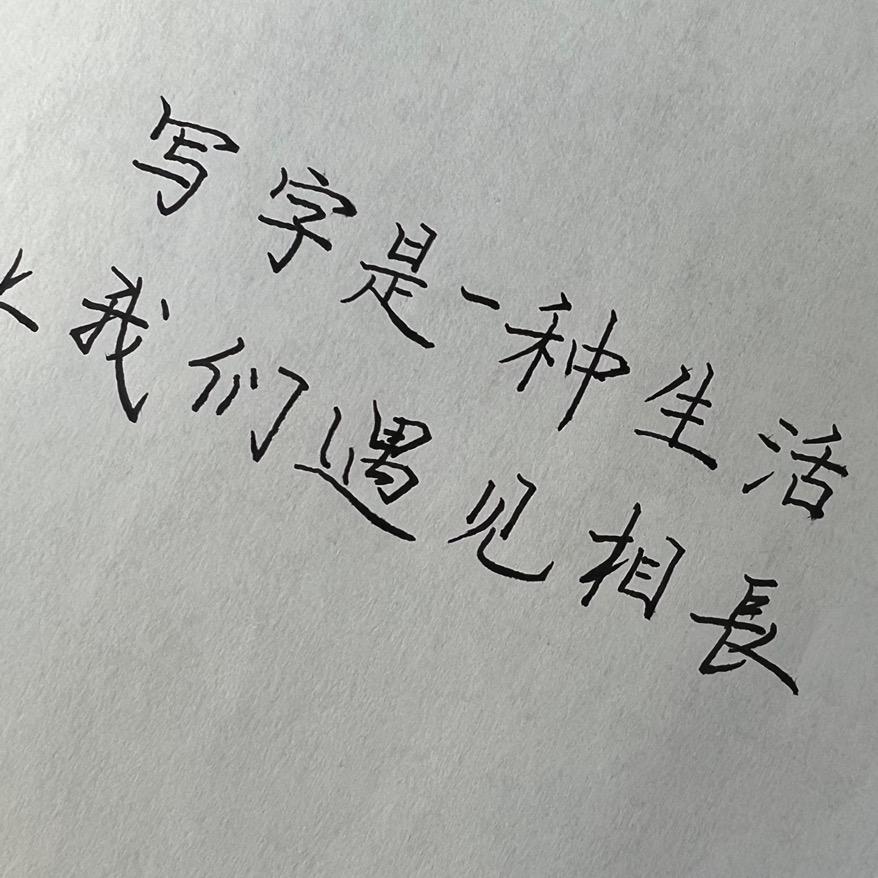 写字是一种生活
我们遇见相長